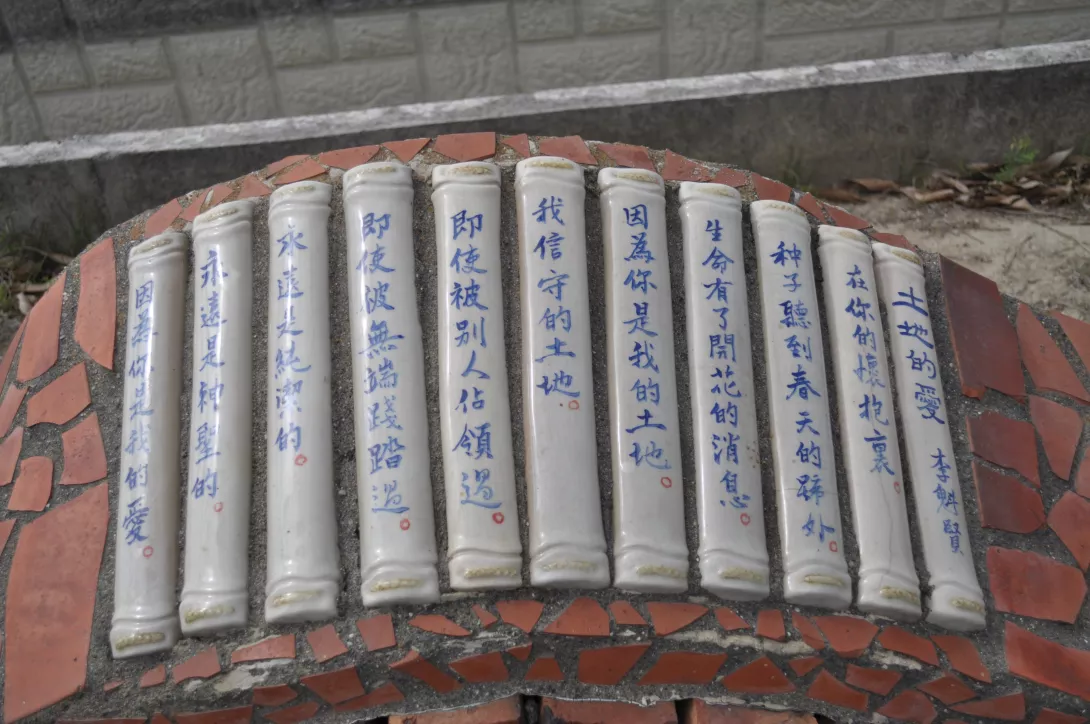 土地的愛 李魁賢
在你的懷抱裏
种子聽到春天的蹄外
生命有了開花的消息
因為你是我的土地
我信守的土地
即使被别人佔領過
即使被無端踐踏過
永遠是純潔的
永遠是神聖的
因為你是我的愛